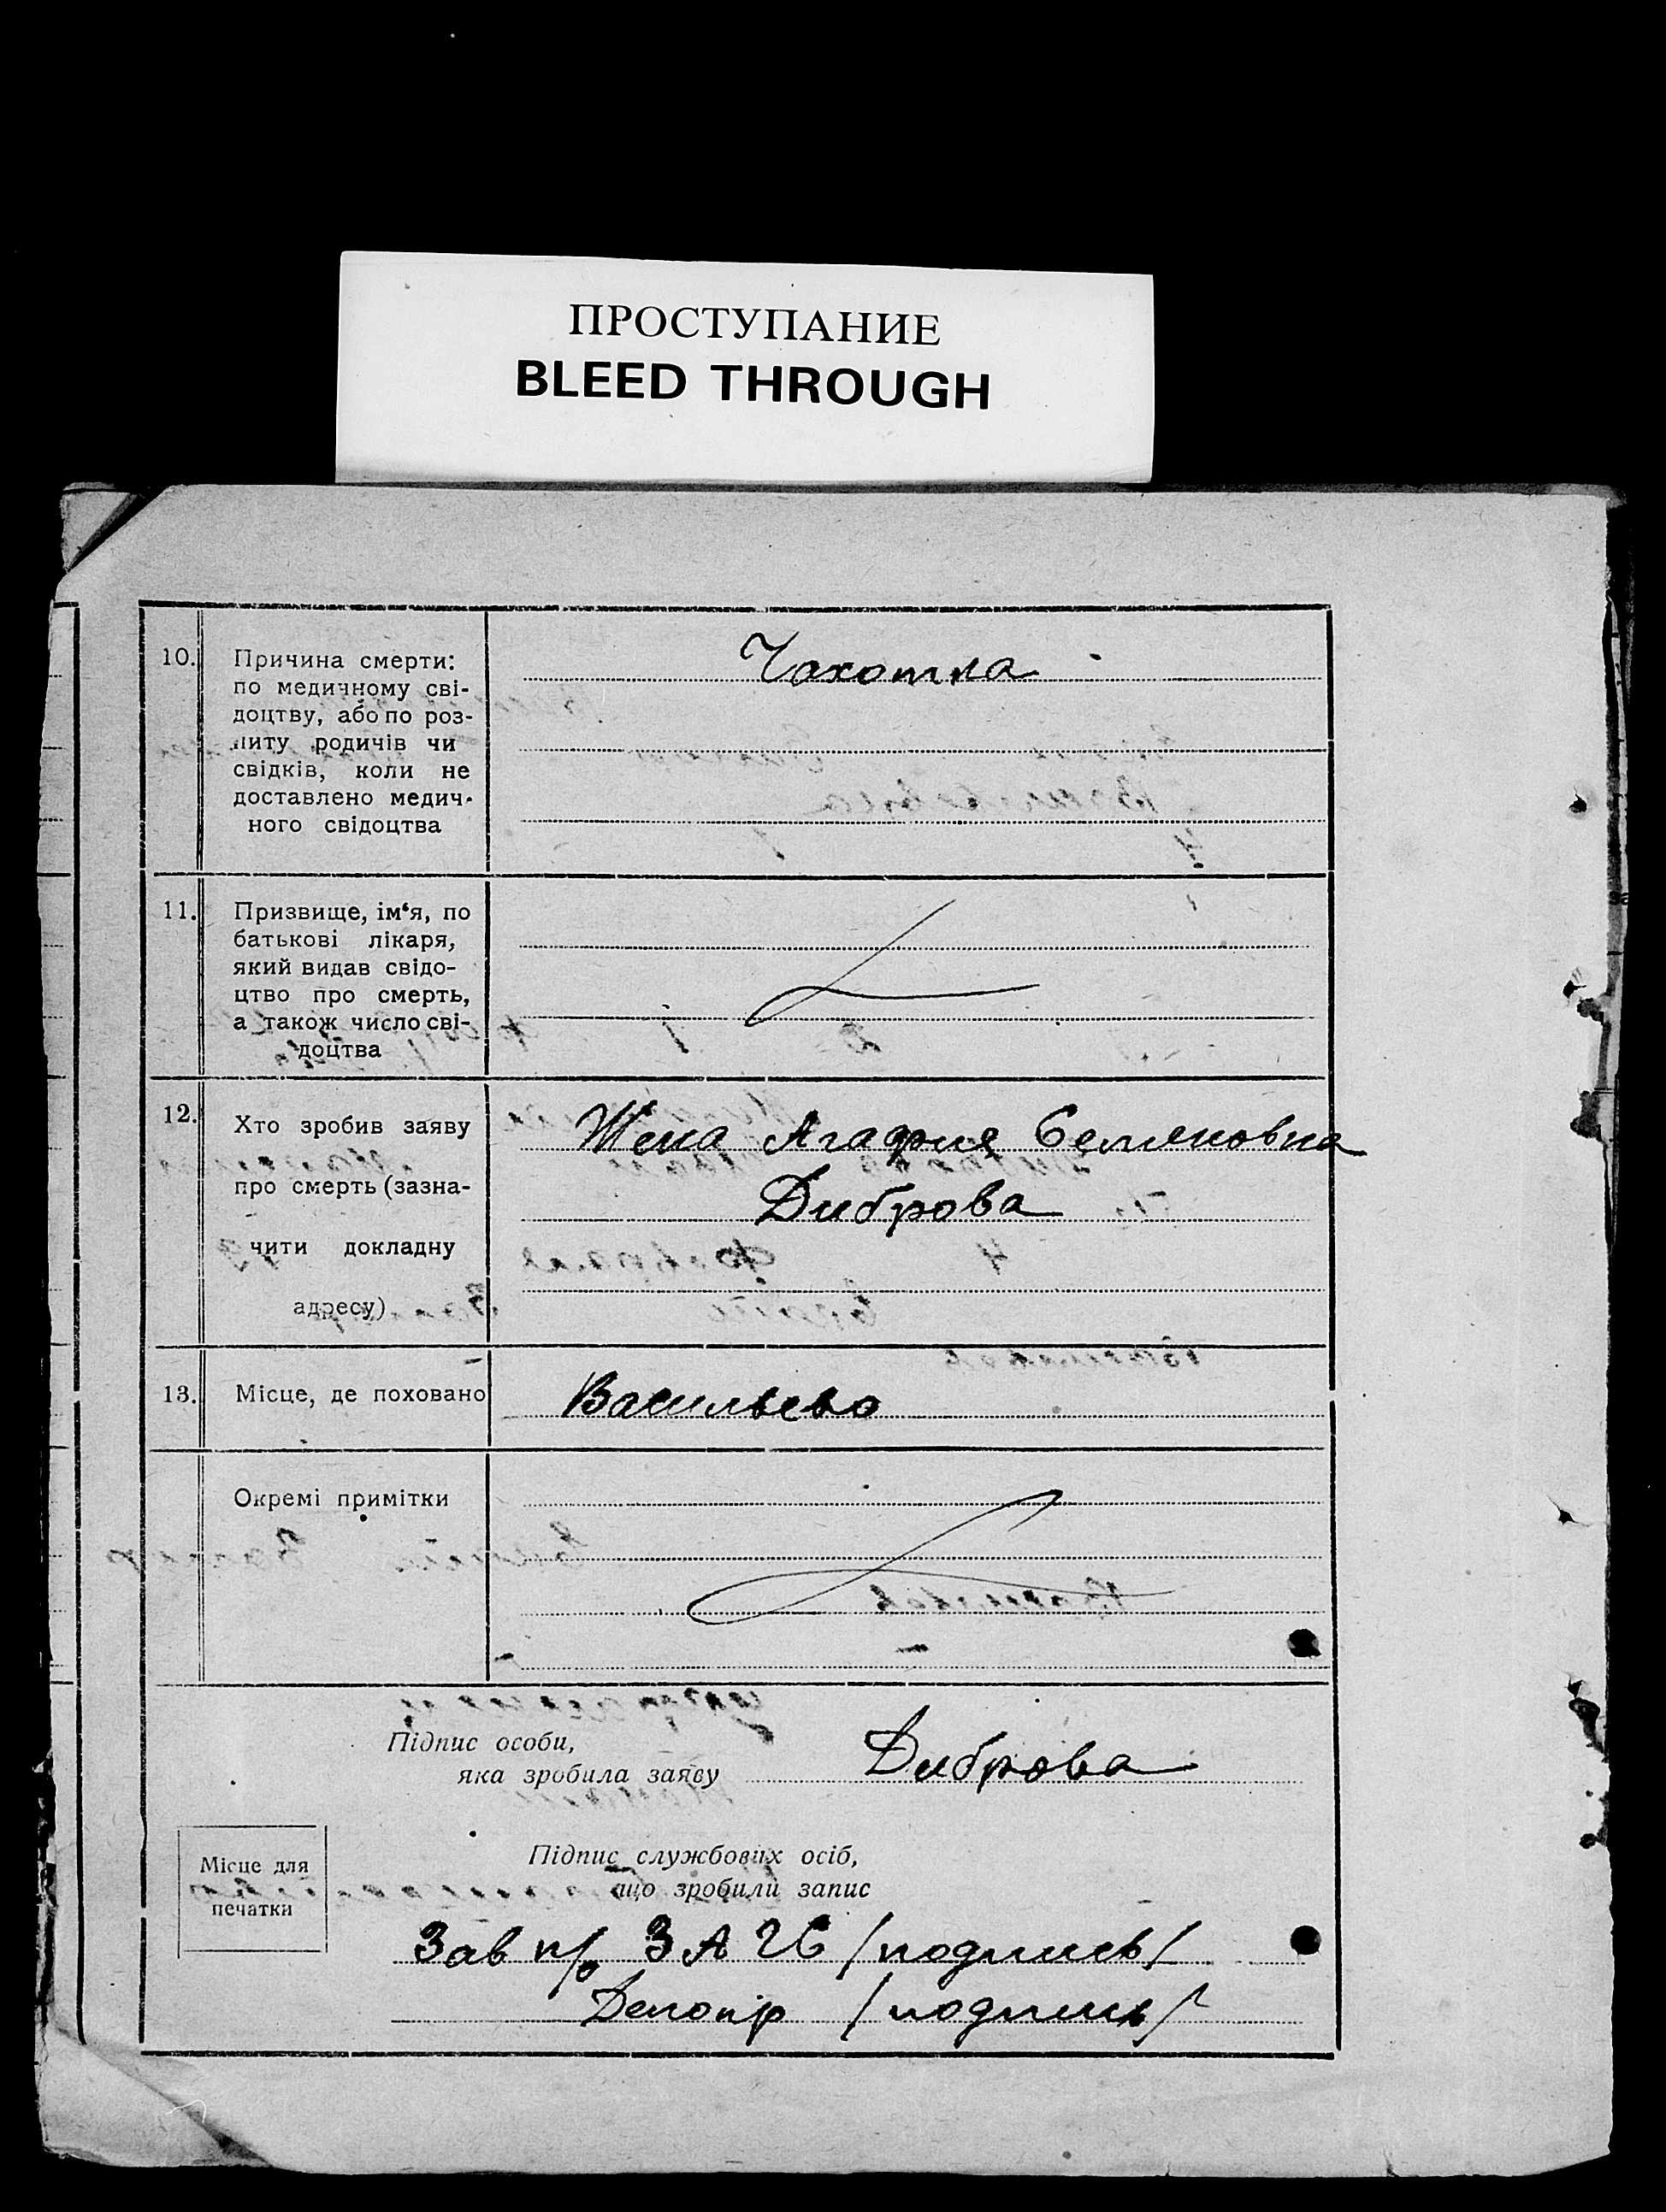 ПРОСТУПАНИЕ
BLEED THROUGH
10. Причина смерти:
по медичному сві-
доцтву, або по роз-
питу родичів чи
свідків, коли не
доставлено медич-
ного свідоцтва
Чахотка
11. Призвище, ім‘я, по
батькові лікаря,
який видав свідо-
цтво про смерть,
а також число сві-
доцтва
12. Хто зробив заяву
про смерть (зазна-
чити докладну
адресу)
Жена Агафия Семяновна
Диброва
13. Місце, де поховано
Васильево
Окремі примітки
Підпис особи,
яка зробила заяву Диброва
Місце для
печатки
Підпис службових осіб,
що зробили запис
Зав п/о ЗАГС /подпись/
Делопр /подпись/